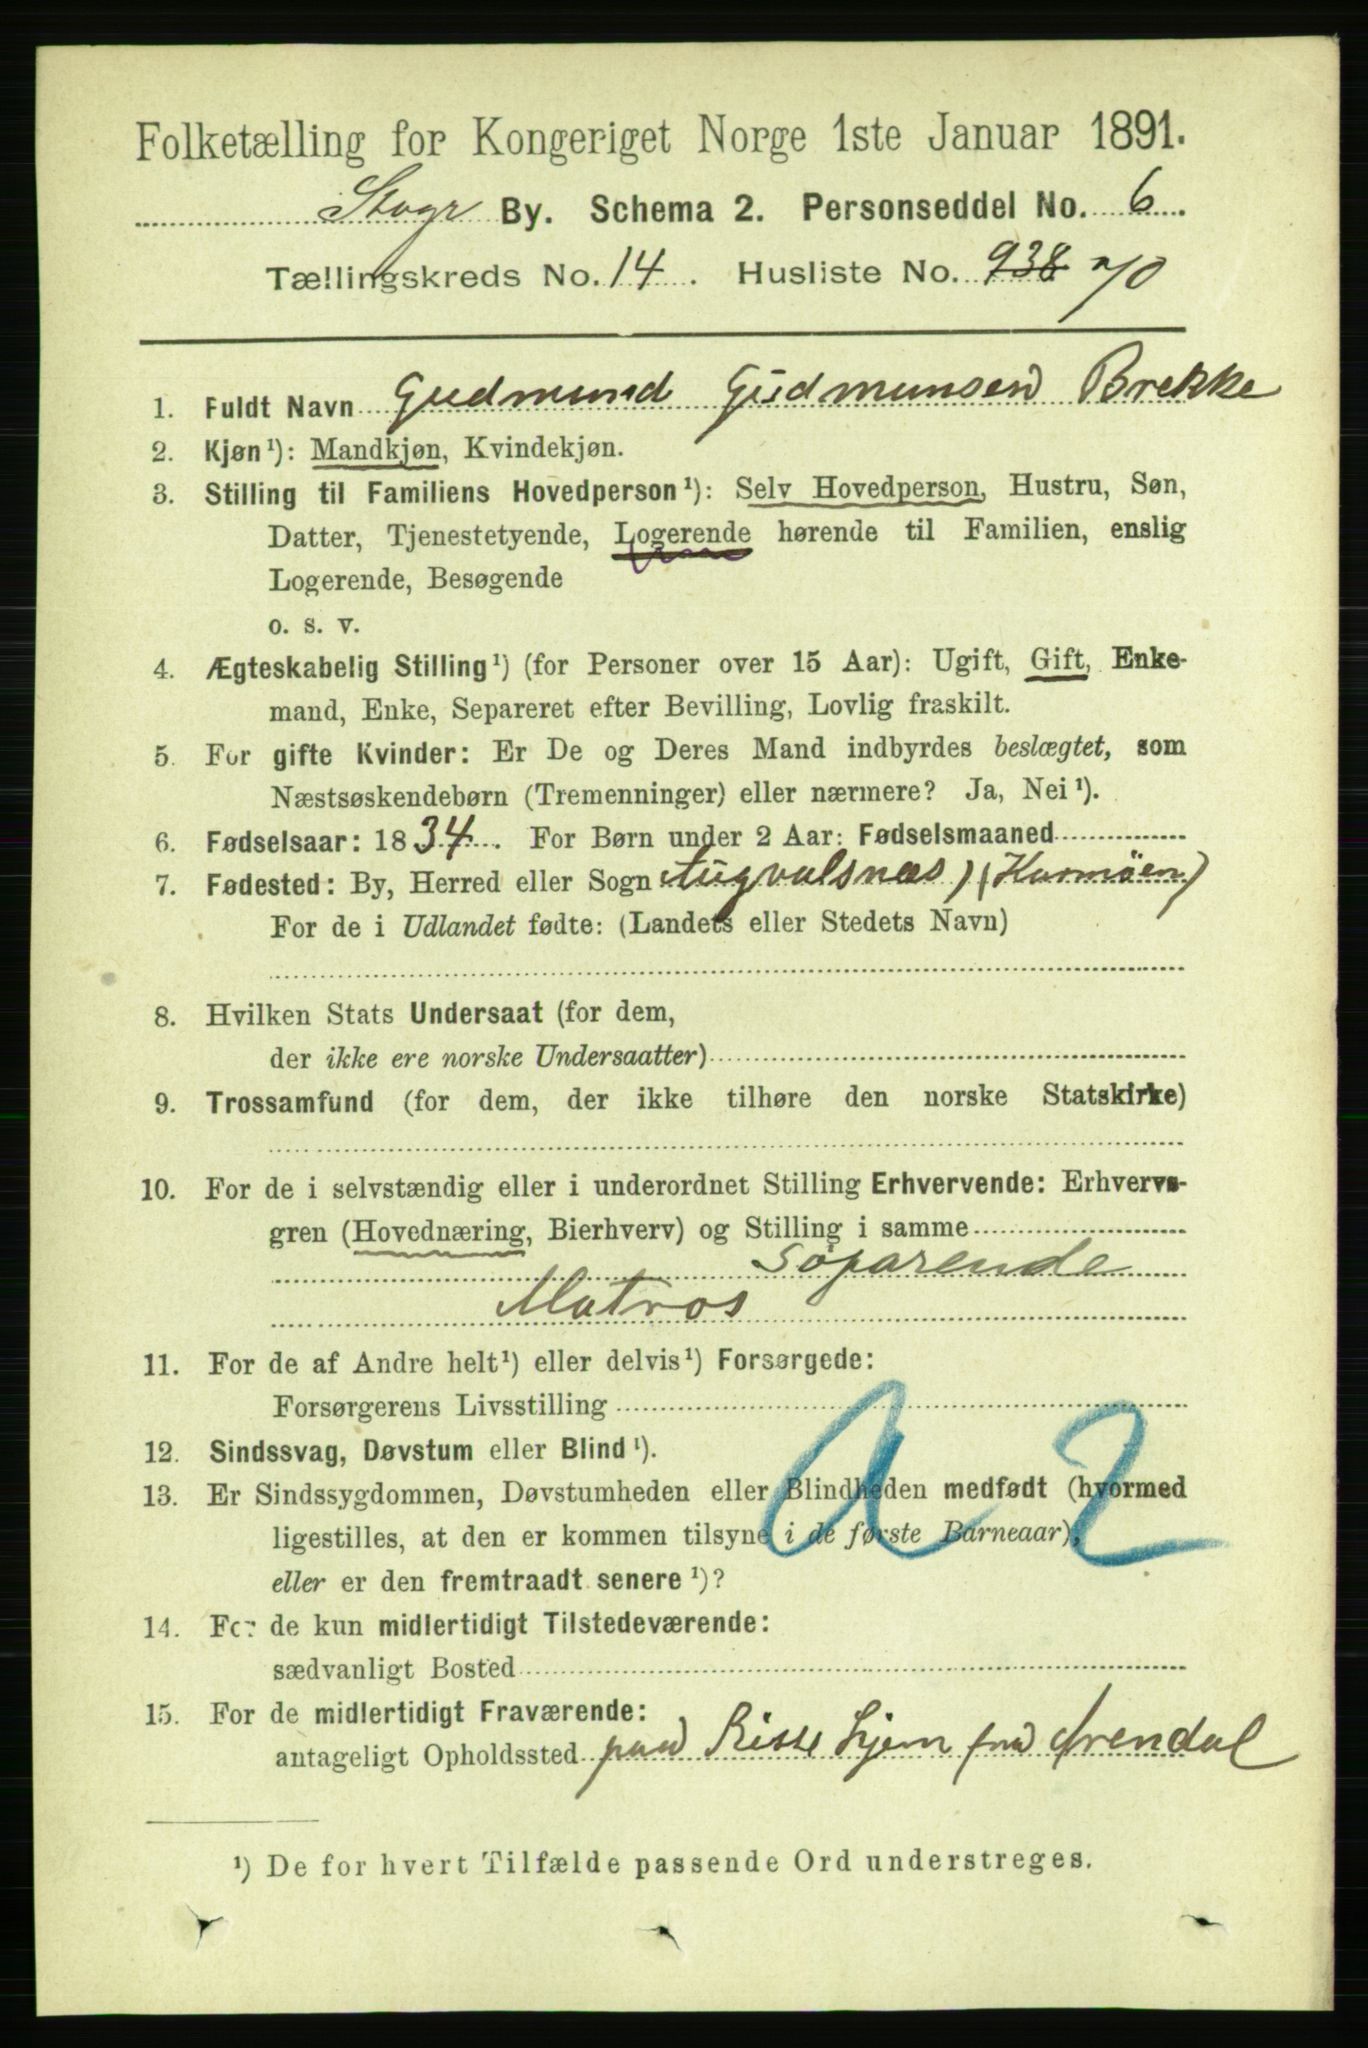 Folketælling for Kongeriget Norge 1ste Januar 1891.
Stvgr By. Schema 2. Personseddel No. 6.
Tællingskreds No. 14. Husliste No. 938 70
1. Fuldt Navn Gudmund Gudmunsen Brekke
2. Kjøn¹): Mandkjøn, Kvindekjøn.
3. Stilling til Familiens Hovedperson¹): Selv Hovedperson, Hustru, Søn,
Datter, Tjenestetyende, Logerende hørende til Familien, enslig
Logerende, Besøgende
o. s. v.
4. Ægteskabelig Stilling¹) (for Personer over 15 Aar): Ugift, Gift, Enke-
mand, Enke, Separeret efter Bevilling, Lovlig fraskilt.
5. For gifte Kvinder: Er De og Deres Mand indbyrdes beslægtet, som
Næstsøskendebørn (Tremenninger) eller nærmere? Ja, Nei¹).
6. Fødselsaar: 1834. For Børn under 2 Aar: Fødselsmaaned
7. Fødested: By, Herred eller Sogn Augvalsnæs) (Karmöen)
For de i Udlandet fødte: (Landets eller Stedets Navn)
8. Hvilken Stats Undersaat (for dem,
der ikke ere norske Undersaatter)
9. Trossamfund (for dem, der ikke tilhøre den norske Statskirke)
10. For de i selvstændig eller i underordnet Stilling Erhvervende: Erhvervs-
gren (Hovednæring, Bierhverv) og Stilling i samme
Söfarende
Matros
11. For de af Andre helt¹) eller delvis¹) Forsørgede:
Forsørgerens Livsstilling
12. Sindssvag, Døvstum eller Blind¹).
13. Er Sindssygdommen, Døvstumheden eller Blindheden medfødt (hvormed
ligestilles, at den er kommen tilsyne i de første Barneaar),
eller er den fremtraadt senere¹)?
a 2
14. For de kun midlertidigt Tilstedeværende:
sædvanligt Bosted
15. For de midlertidigt Fraværende:
antageligt Opholdssted paa Reise hjem fra Arendal
¹) De for hvert Tilfælde passende Ord understreges.